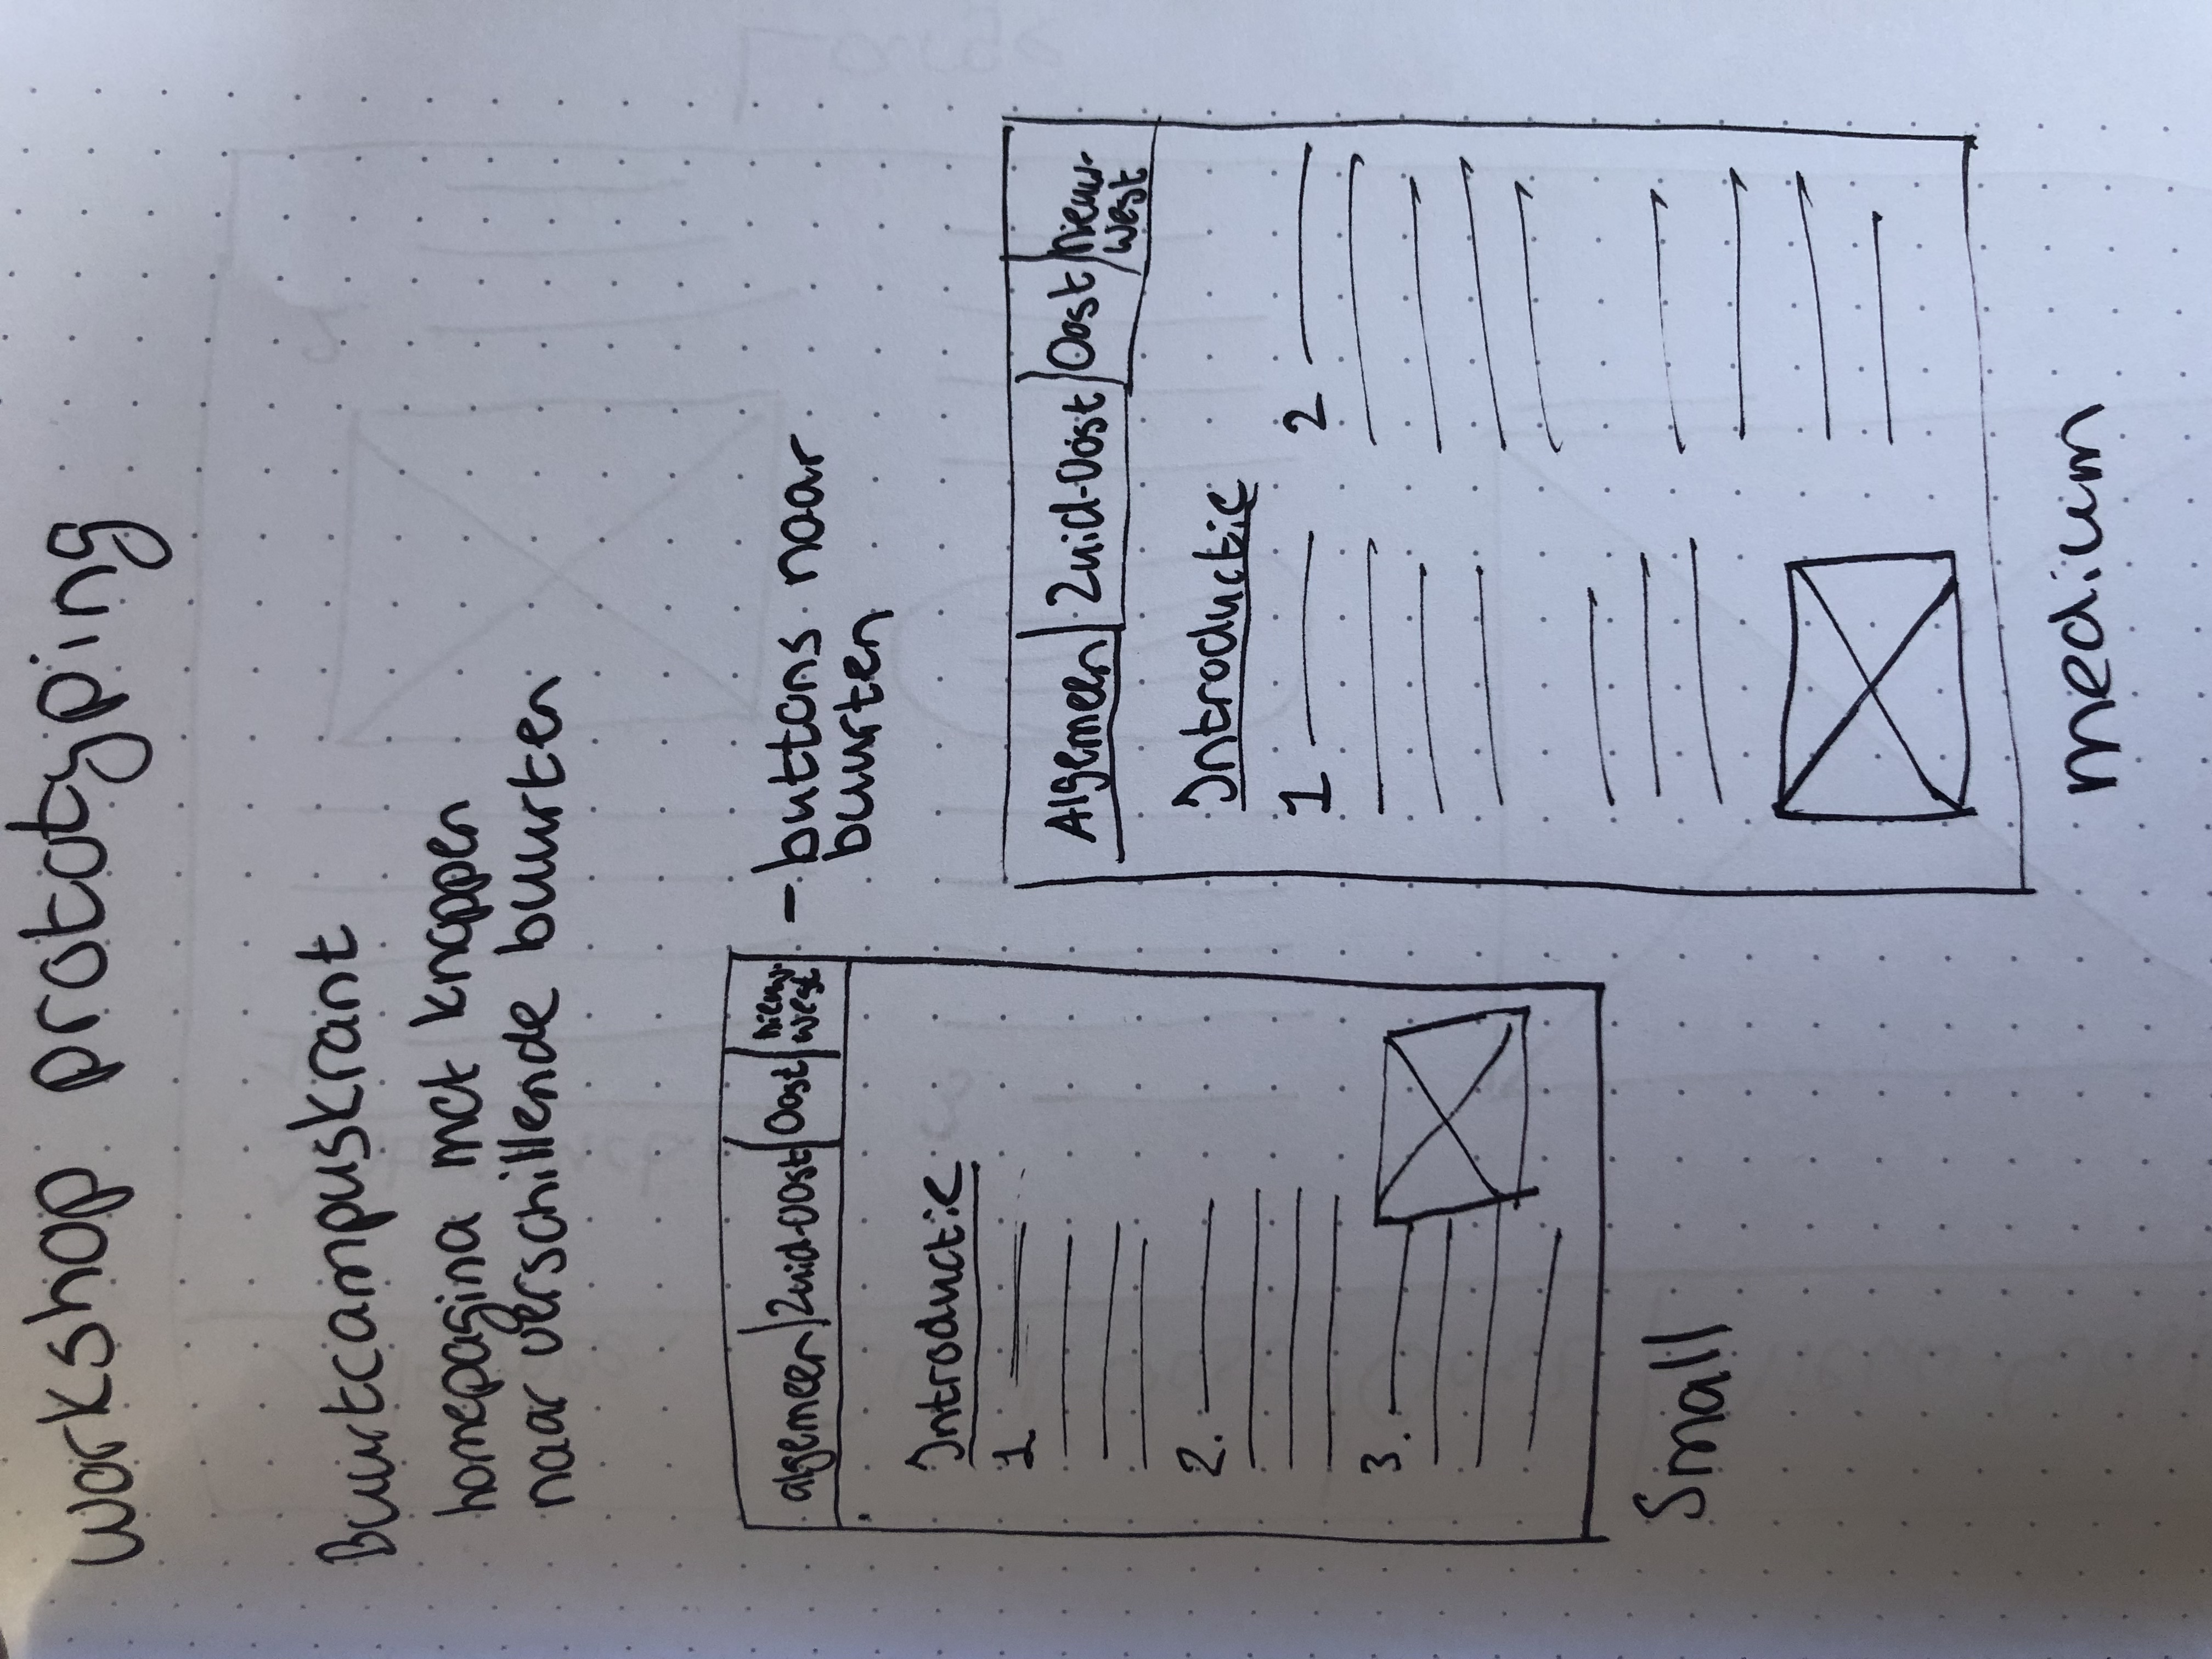 workshop prototyping
Buurtcampuskrant
homepagina met knoppen
naar verschillende buurten
algemeen Zuid-Oost Oost nieuw-
west
- buttons naar
buurten
Introductie
1
2.
3.
Small
Algemeen Zuid-Oost Oost nieuw-
west
Introductie
1 2
medium